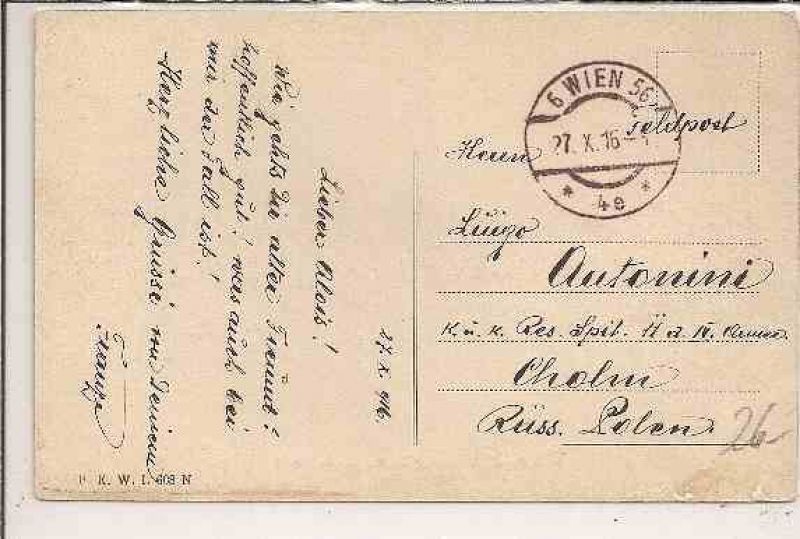 27. X. 916.
Lieber Alois!
Wie gehts Dir alter Freund?
hoffentlich gut! was auch bei
mir der Fall ist!
Herzliche Grüsse von Deinem
6 WIEN 56
27. X. 16
* 4e *
Feldpost
Herrn
Luigo
Antonini
K. u. k. Res. Spit. II d. IV. Armee
Cholm
Russ. Polen.
26
P. K. W. I. 603 N